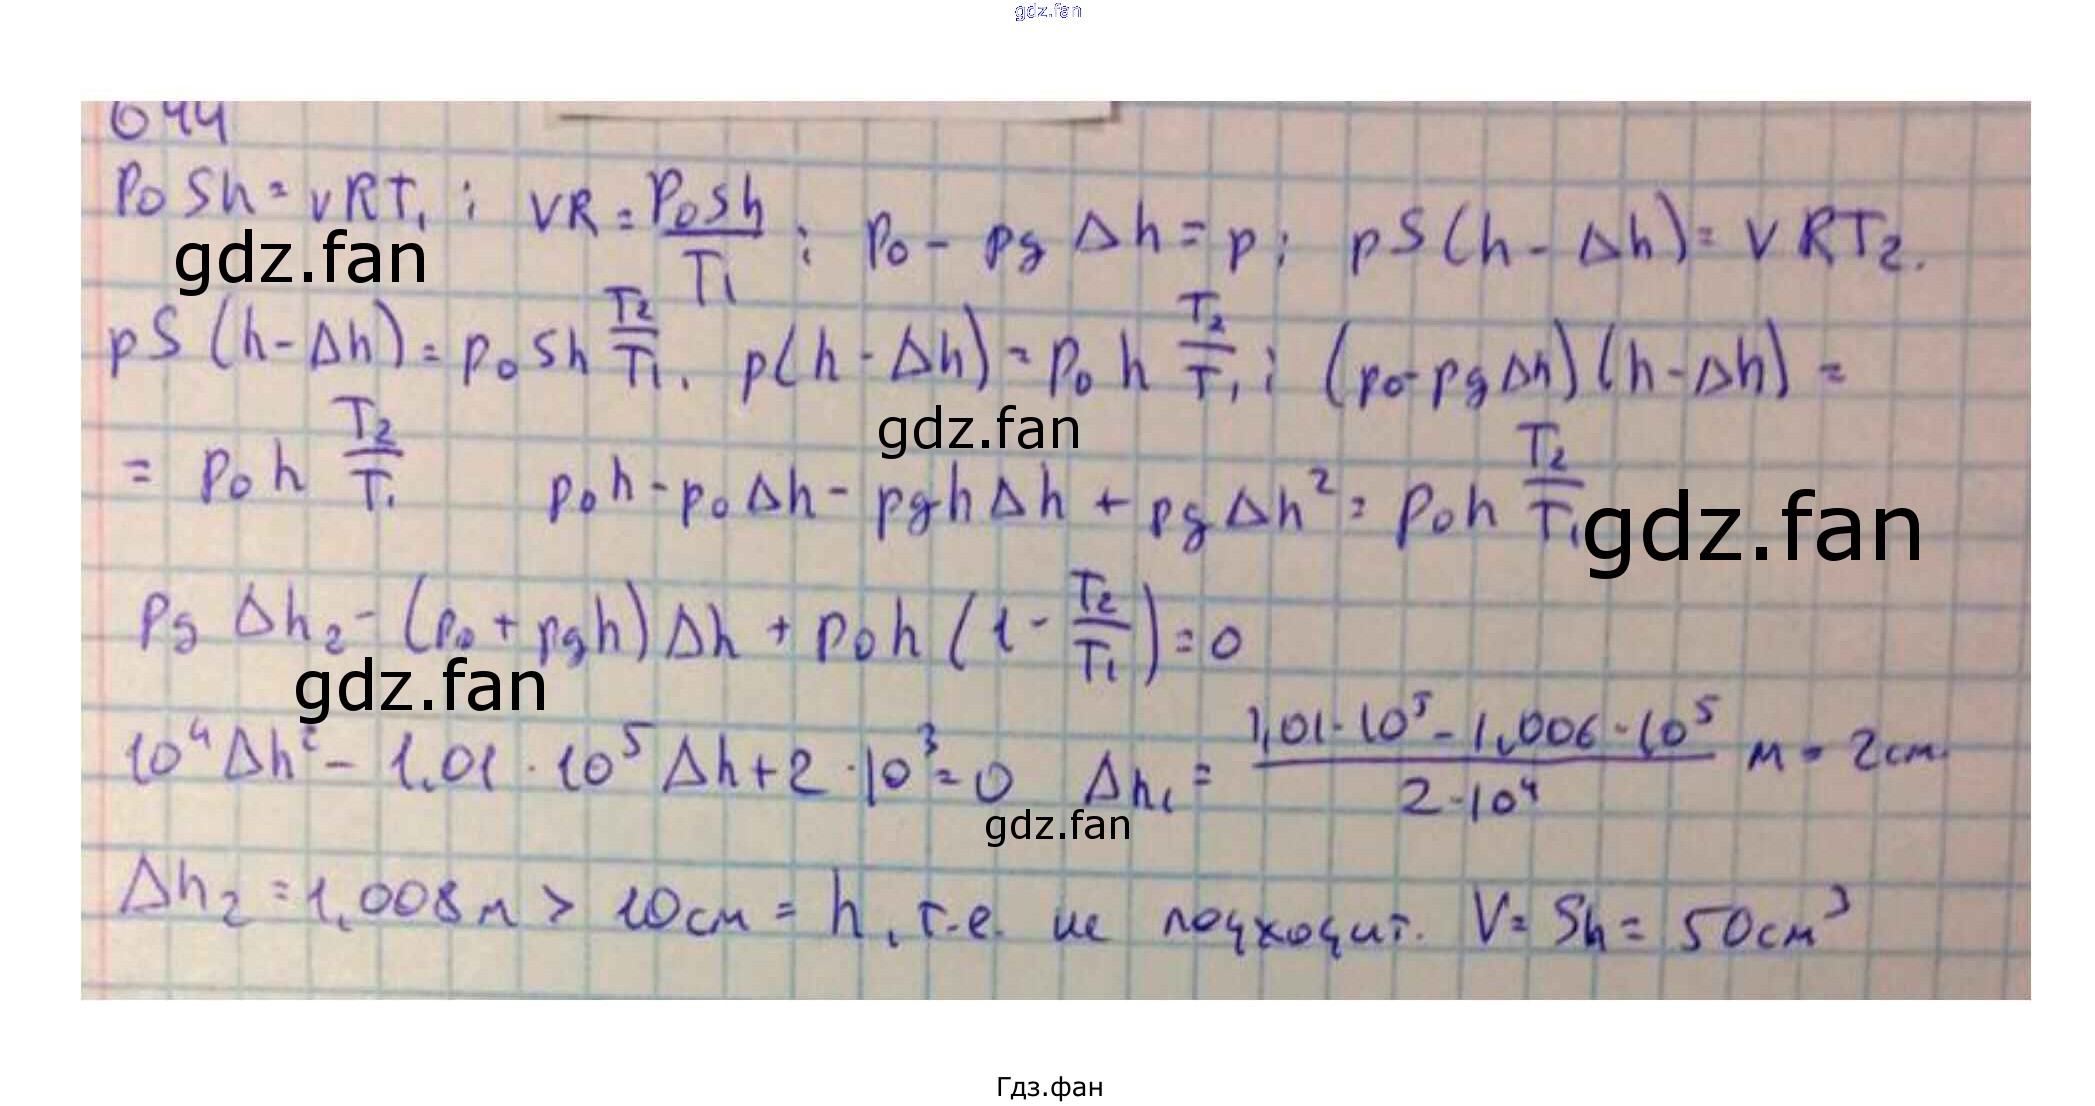 gdz.fan
644
P₀Sh = νRT₁ ; νR = P₀Sh/T₁ ; p₀ - ρgΔh = p ; pS(h - Δh) = νRT₂.
gdz.fan
pS(h - Δh) = p₀Sh T₂/T₁. p(h - Δh) = p₀h T₂/T₁ ; (p₀ - ρgΔh)(h - Δh) =
gdz.fan
= p₀h T₂/T₁ p₀h - p₀Δh - ρghΔh + ρgΔh² = p₀h T₂/T₁
gdz.fan
ρgΔh₂ - (p₀ + ρgh)Δh + p₀h(1 - T₂/T₁) = 0
gdz.fan
10⁴Δh² - 1,01 · 10⁵Δh + 2 · 10³ = 0 Δh₁ = (1,01 · 10⁵ - 1,006 · 10⁵)/(2 · 10⁴) м = 2 см.
gdz.fan
Δh₂ = 1,008 м > 10 см = h, т.е. не подходит. V = Sh = 50 см³
Гдз.фан